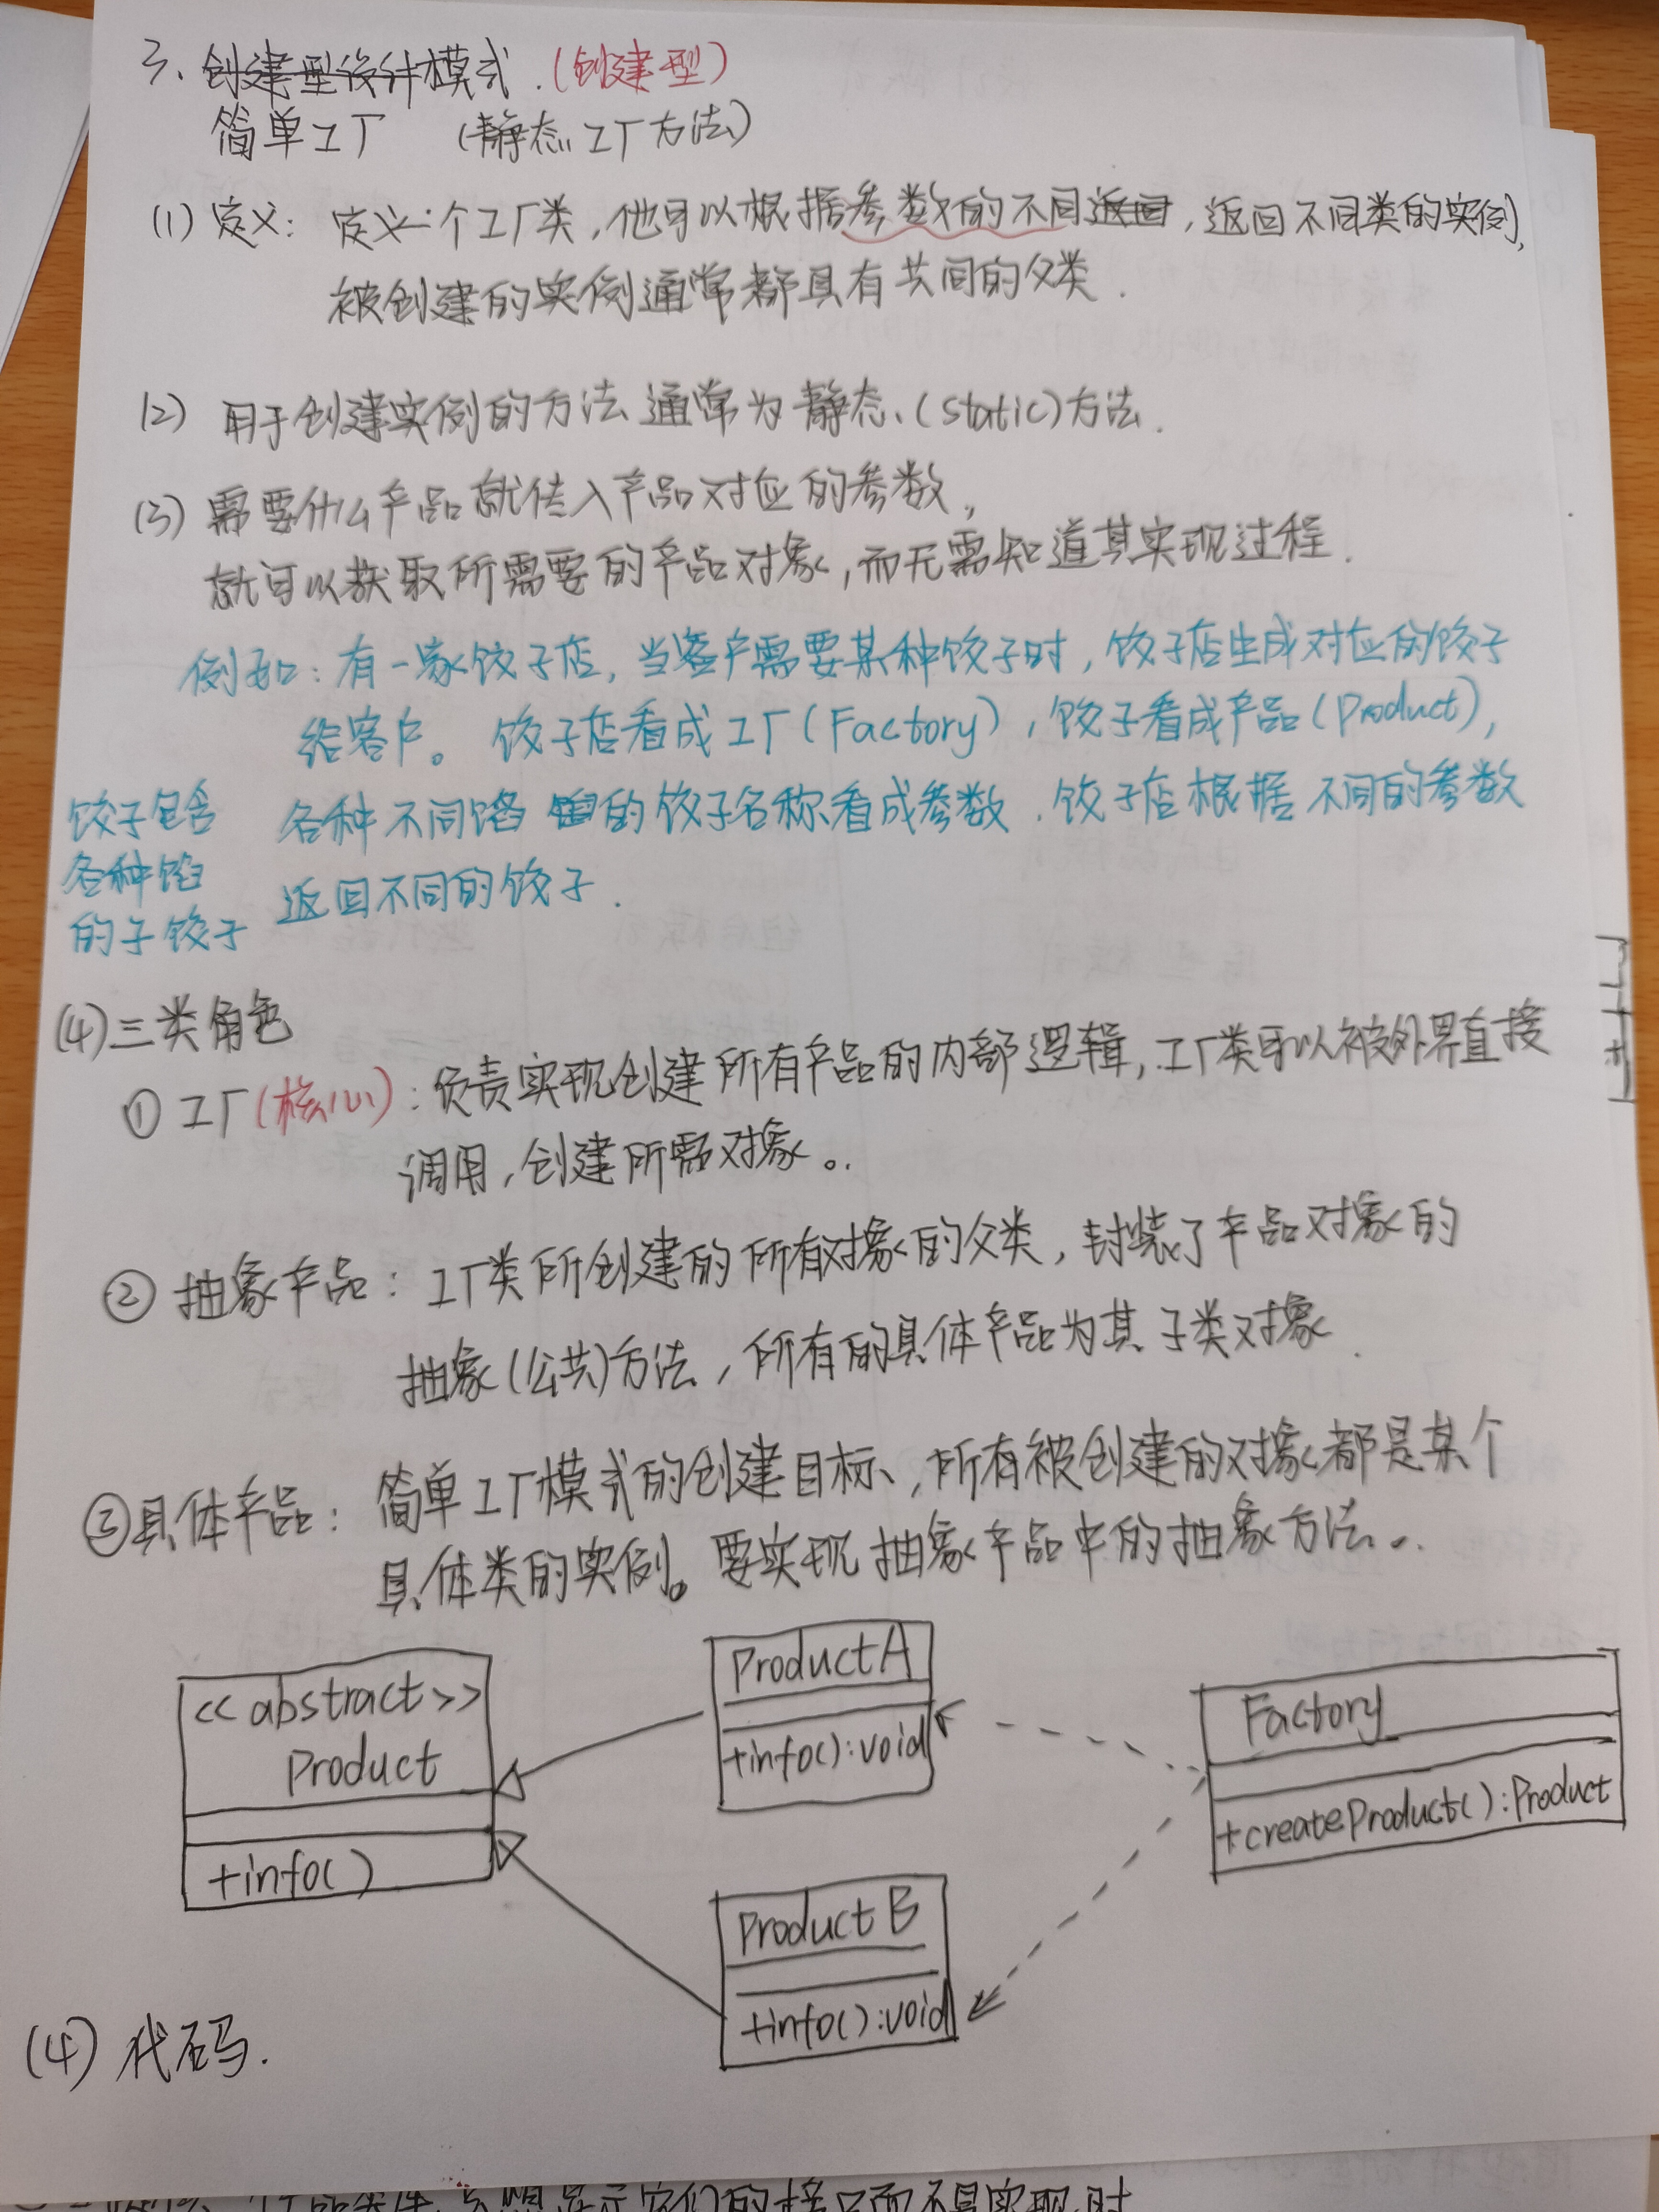 3、创建型设计模式.(创建型)
简单工厂 (静态工厂方法)
(1) 定义: 定义一个工厂类,他可以根据参数的不同返回,返回不同类的实例,
被创建的实例通常都具有共同的父类.
(2) 用于创建实例的方法通常为静态(static)方法.
(3) 需要什么产品就传入产品对应的参数,
就可以获取所需要的产品对象,而无需知道其实现过程.
例如:有一家饺子店,当客户需要某种饺子时,饺子店生成对应的饺子
给客户。饺子店看成工厂(Factory),饺子看成产品(Product),
各种不同馅的饺子名称看成参数.饺子店根据不同的参数
返回不同的饺子.
饺子包含
各种馅
的子饺子
(4)三类角色
① 工厂(核心):负责实现创建所有产品的内部逻辑,工厂类可以被外界直接
调用,创建所需对象。
② 抽象产品: 工厂类所创建的所有对象的父类,封装了产品对象的
抽象(公共)方法,所有的具体产品为其子类对象.
③具体产品: 简单工厂模式的创建目标,所有被创建的对象都是某个
具体类的实例。要实现抽象产品中的抽象方法.
<<abstract>>
Product
+info()
ProductA
+info():void
Factory
+createProduct():Product
Product B
+info():void
(4) 代码.